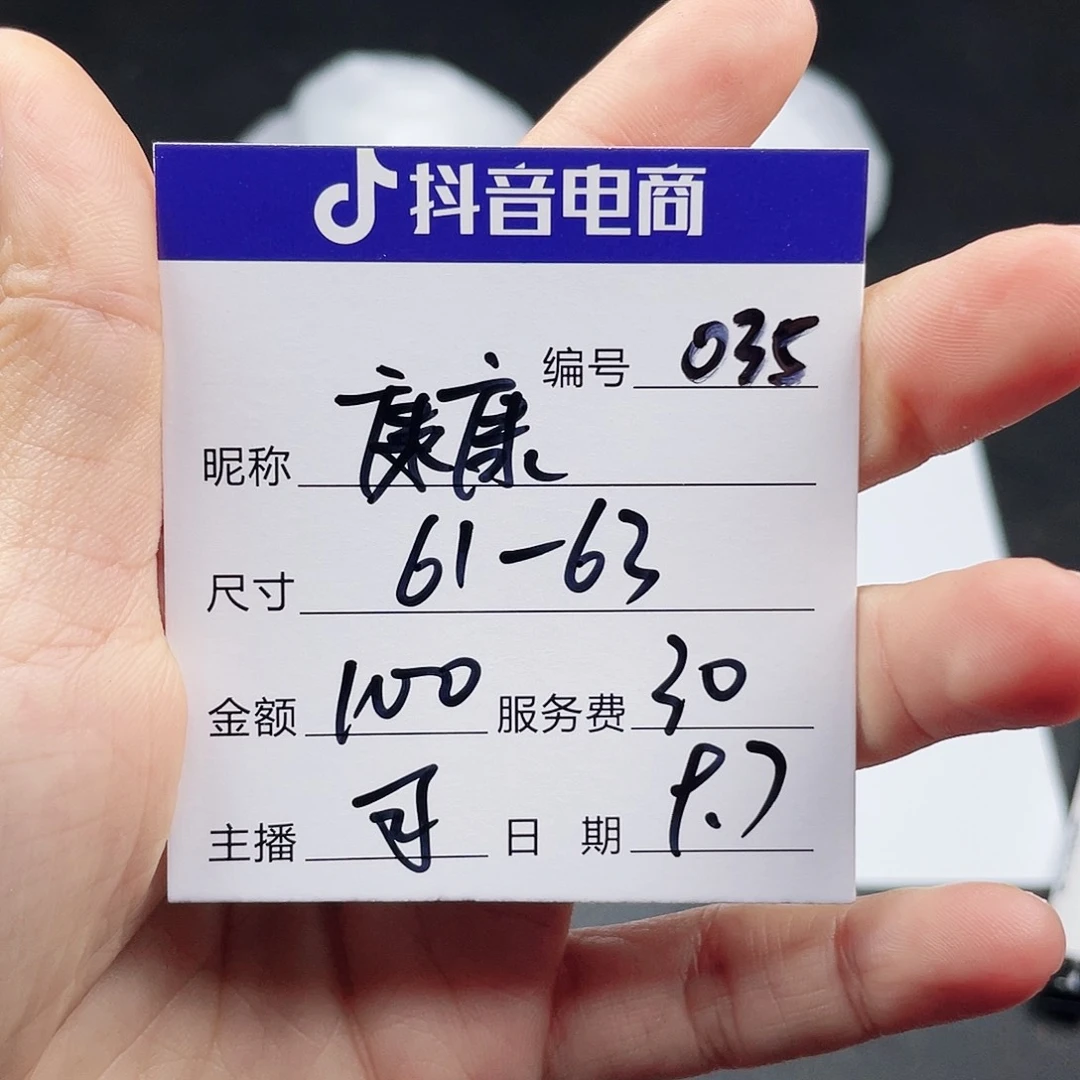 抖音电商
编号 035
昵称 康康
尺寸 61-63
金额 100 服务费 30
主播 日期 9.7